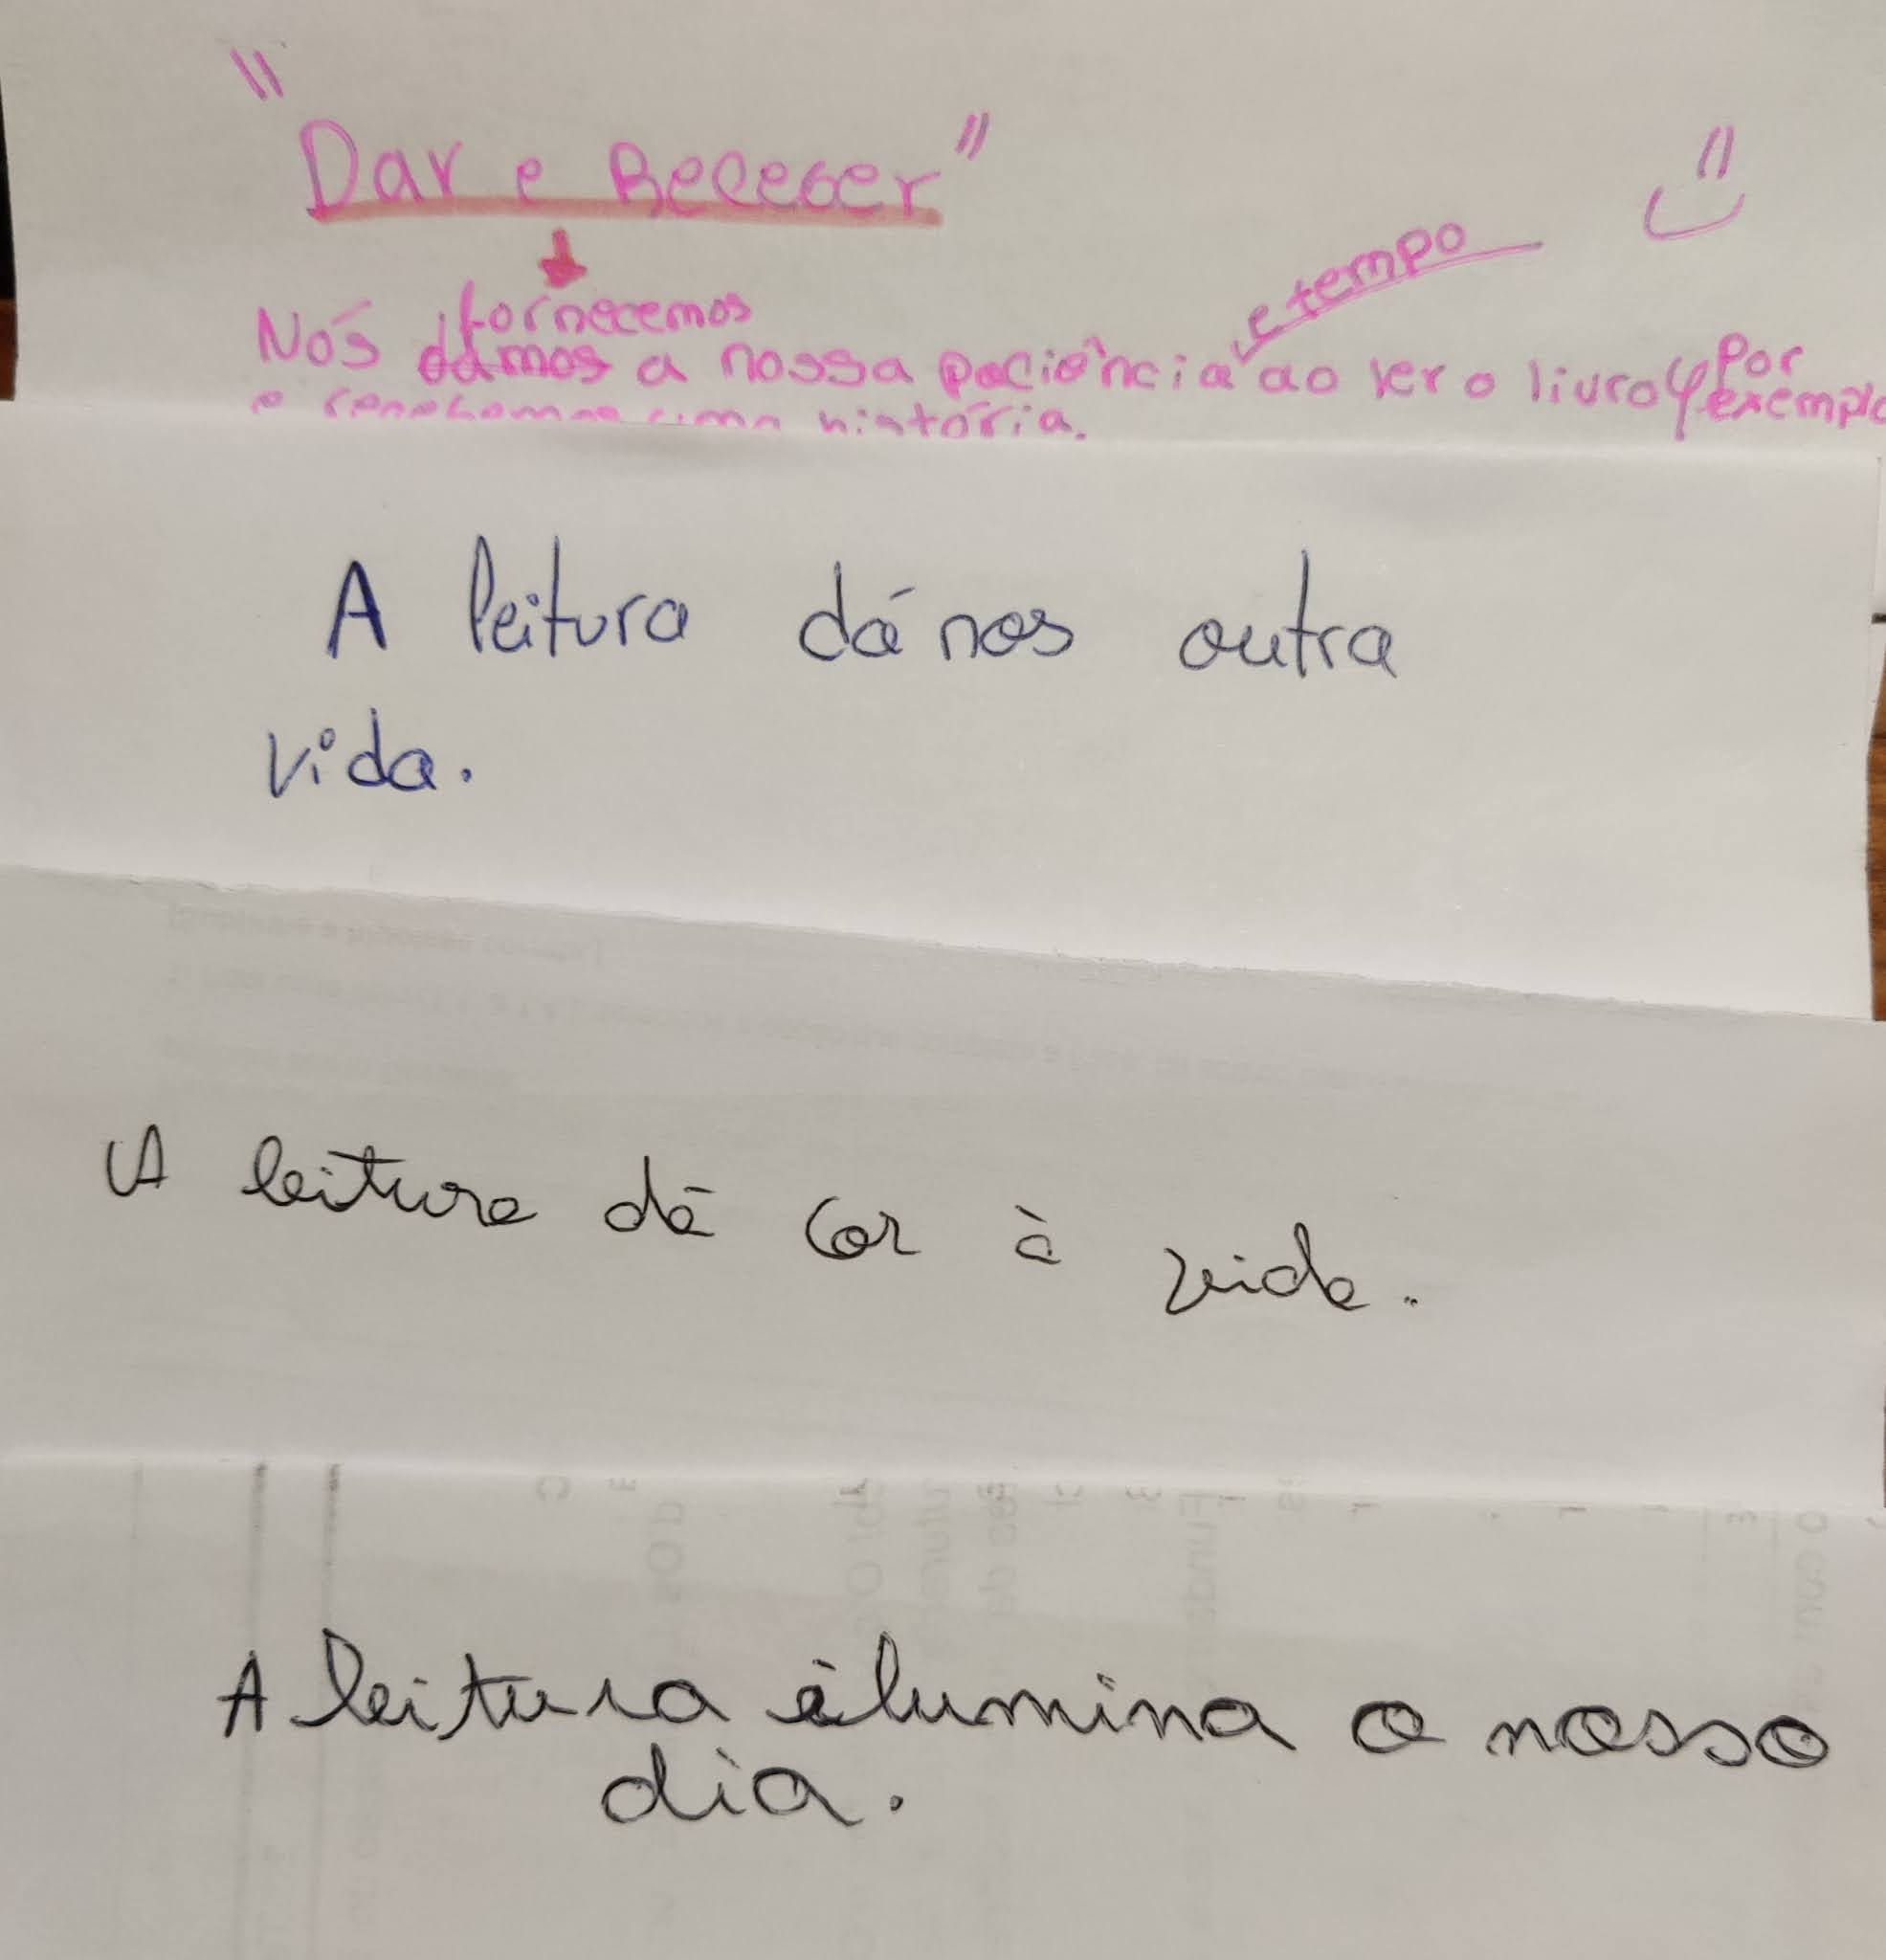 "Dar e Receber"
Nós fornecemos a nossa paciência e tempo ao ler o livro, por exemplo
e recebemos uma história.
A leitura dá nos outra
vida.
A leitura dá cor à vida.
A leitura ilumina o nosso
dia.